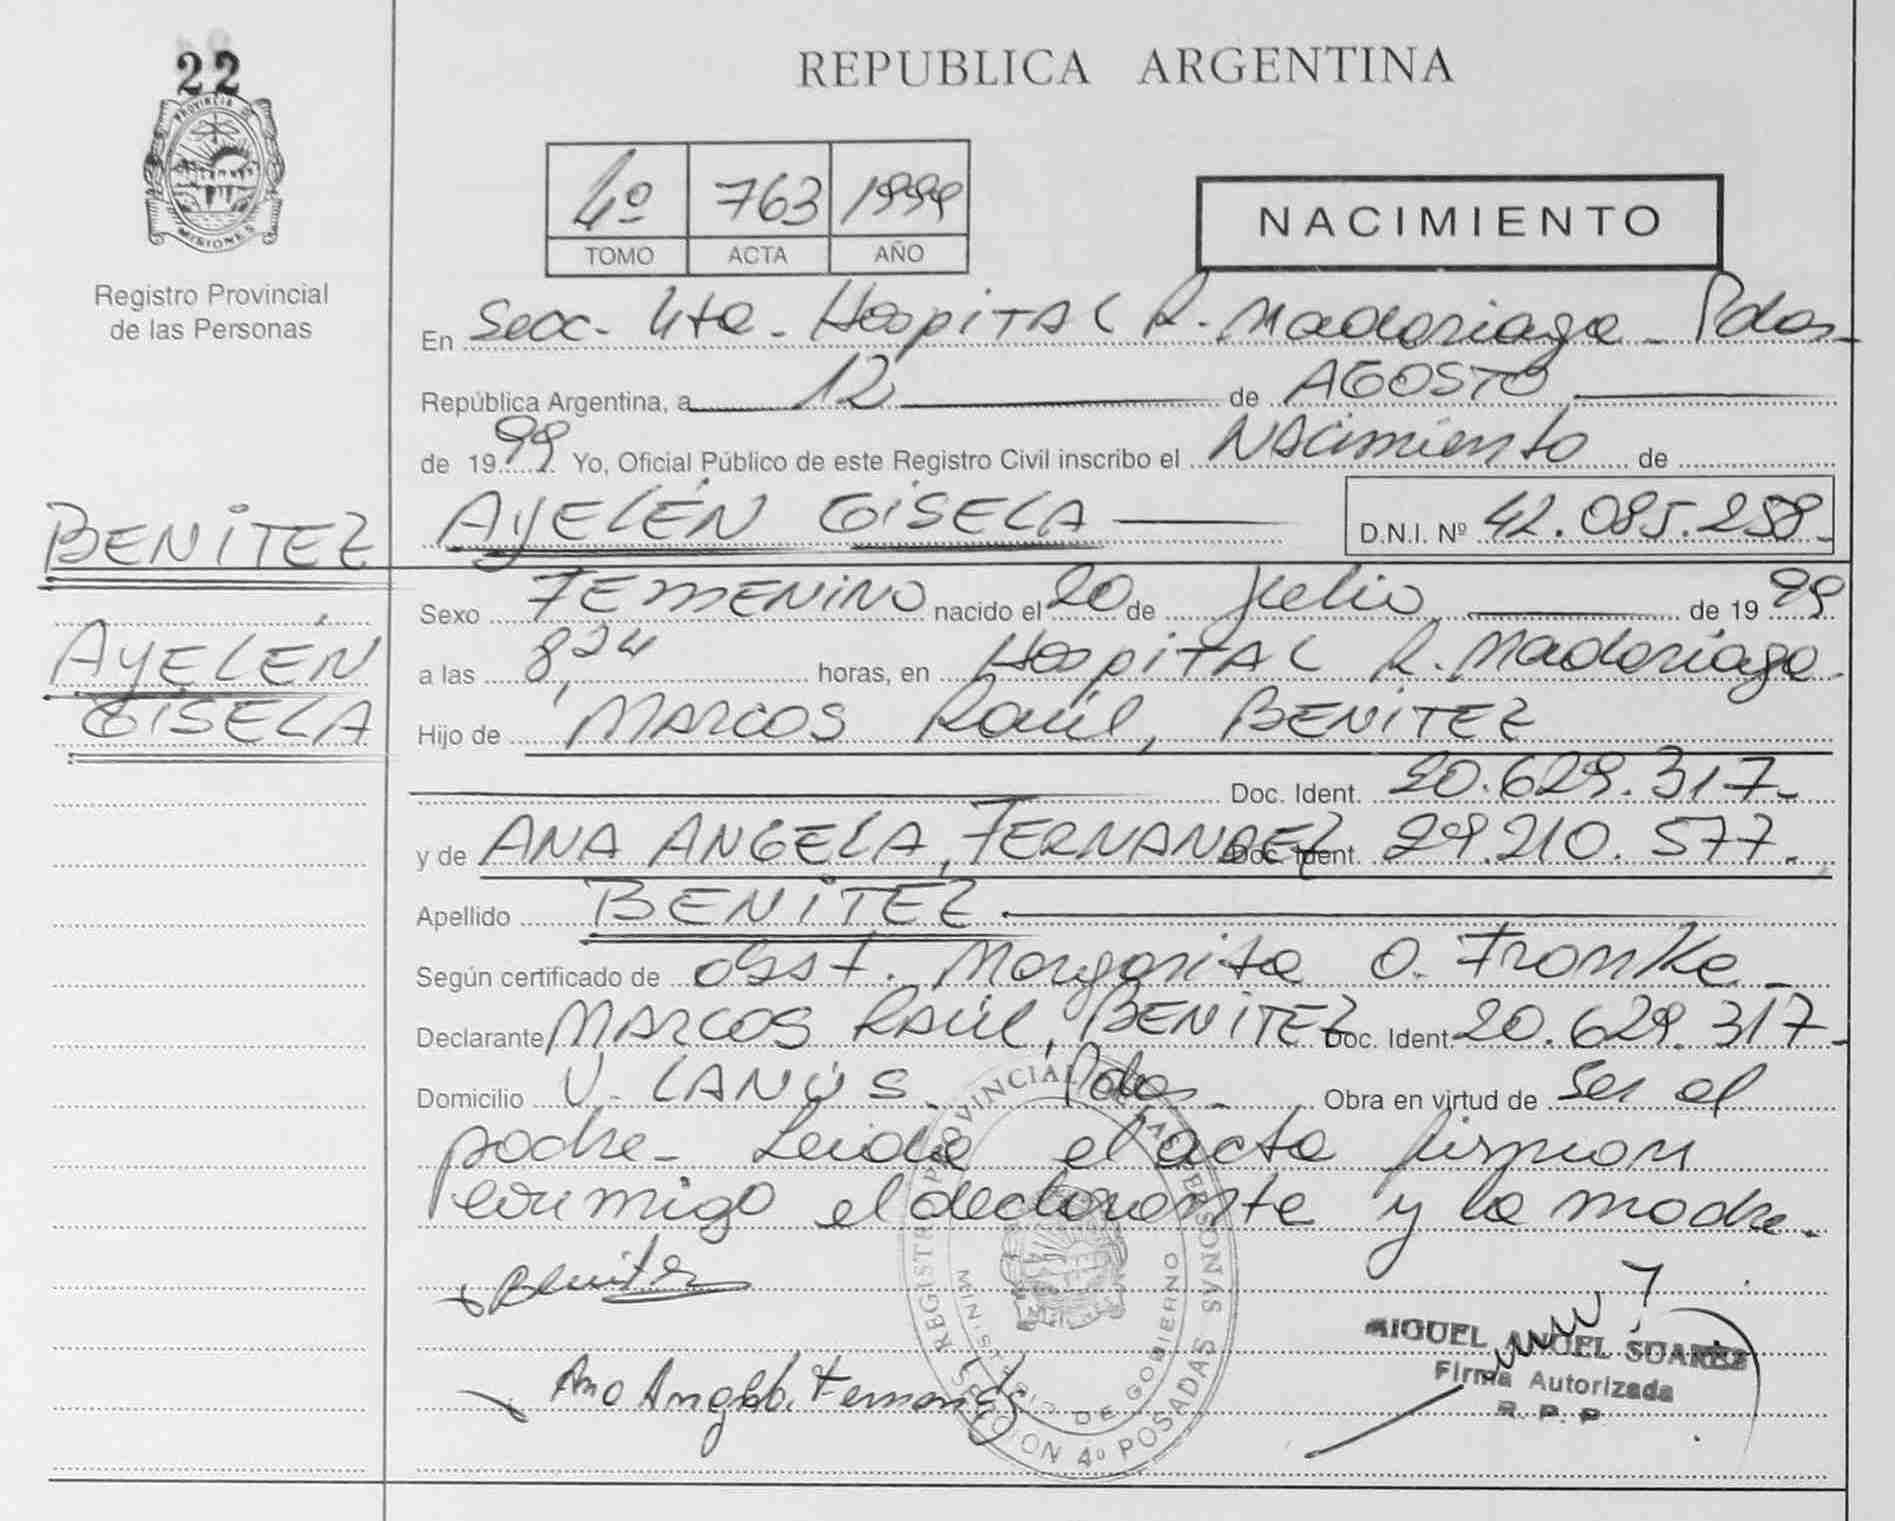 22
PROVINCIA DE
MISIONES
Registro Provincial
de las Personas
REPUBLICA ARGENTINA
4º 763 1999
TOMO ACTA AÑO
NACIMIENTO
En Secc. 4ta. Hospital R. Madariaga - Pdas.
República Argentina, a 12 de AGOSTO
de 1999 Yo, Oficial Público de este Registro Civil inscribo el Nacimiento de
BENITEZ AYELÉN GISELA D.N.I. Nº 42.085.258.
Sexo FEMENINO nacido el 20 de Julio de 1999
AYELÉN
a las 8,24 horas, en Hospital R. Madariaga.
GISELA
Hijo de MARCOS Raúl, BENITEZ
Doc. Ident. 20.629.317-
y de ANA ANGELA, FERNANDEZ Doc. Ident. 29.210.577.
Apellido BENITEZ
Según certificado de Obst. Margarita O. Fronke
Declarante MARCOS RAÚL, BENITEZ Doc. Ident. 20.629.317-
Domicilio V. LANÚS. Pdas. Obra en virtud de ser el
padre. Leida el acta firman
conmigo el declarante y la madre.
Benitez
Ana Angela Fernandez
MIGUEL ANGEL SUAREZ
Firma Autorizada
R. P. P.
REGISTRO PROVINCIAL DE LAS PERSONAS
MINISTERIO DE GOBIERNO
SECCION 4º POSADAS